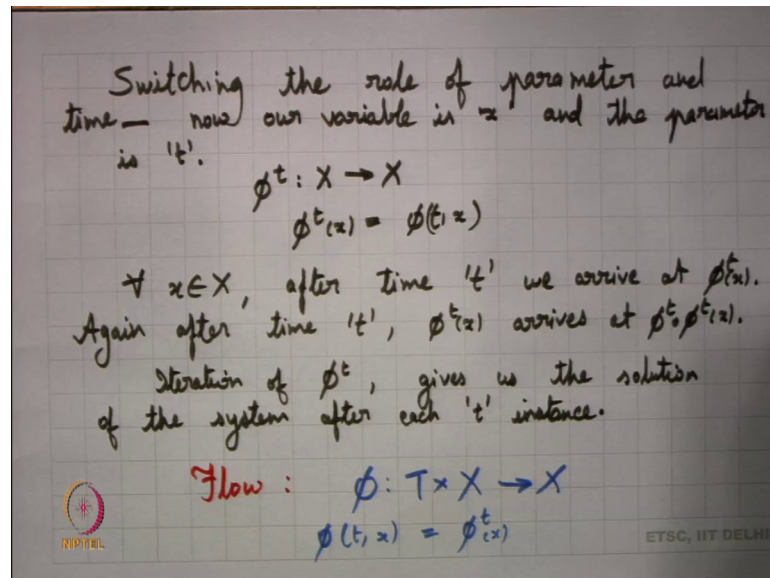 Switching the role of parameter and
time — now our variable is 'x' and the parameter
is 't'.
φᵗ : X → X
φᵗ(x) = φ(t, x)
∀ x ∈ X, after time 't' we arrive at φᵗ(x).
Again after time 't', φᵗ(x) arrives at φᵗ∘φᵗ(x).
Iteration of φᵗ, gives us the solution
of the system after each 't' instance.
Flow : φ : T × X → X
φ(t, x) = φᵗ(x)
NPTEL
ETSC, IIT DELHI